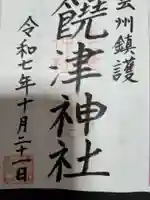 芸州鎮護
饒津神社
令和七年十月二十一日